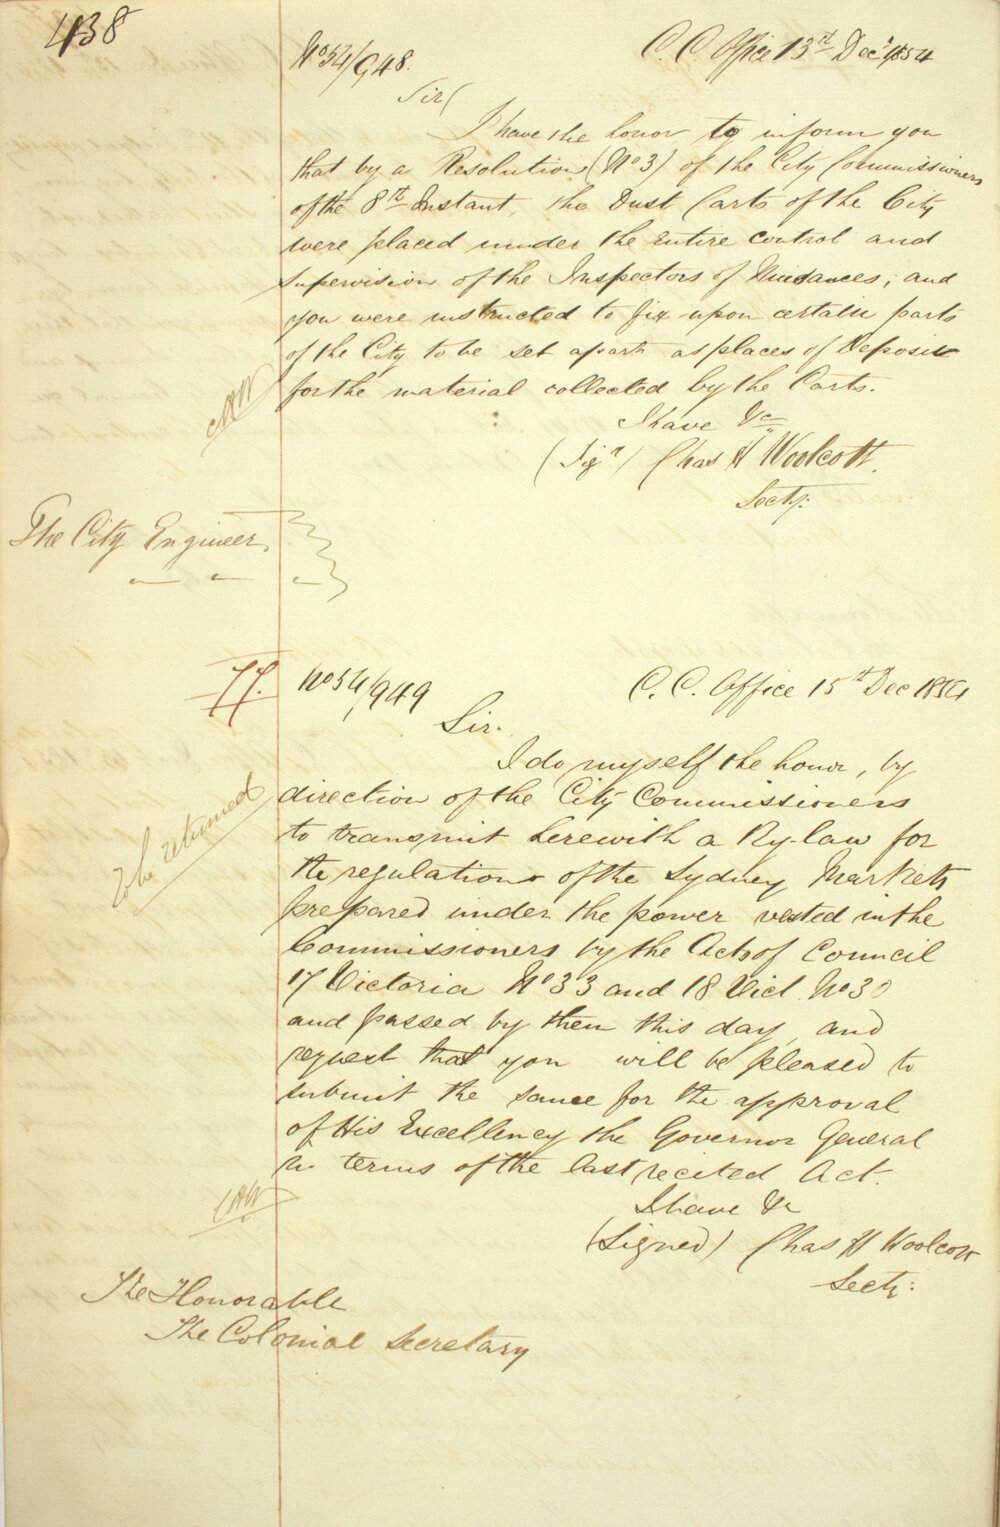 438
No 54/948. C. C. Office 13th Decr 1854
Sir(
I have the honor to inform you
that by a Resolution (No 3) of the City Commissioners
of the 8th Instant, the Dust Carts of the City
were placed under the entire control and
supervision of the Inspectors of Nuisances; and
you were instructed to fix upon certain parts
of the City to be set apart as places of Deposit
for the material collected by the Carts.
CHW
I have &c
(Sigd) Chas H Woolcott.
Secty:
The City Engineer.
77. No 54/949 C. C. Office 15th Dec 1854
Sir.
I do myself the honor, by
direction of the City Commissioners
to transmit herewith a By-law for
the regulations of the Sydney Markets
prepared under the power vested in the
Commissioners by the Acts of Council
17 Victoria No 33 and 18 Vict. No 30
and passed by them this day, and
request that you will be pleased to
submit the same for the approval
of His Excellency the Governor General
in terms of the last recited Act.
To be returned
CHW
I have &c
(Signed) Chas H Woolcott
Secty:
The Honorable
The Colonial Secretary